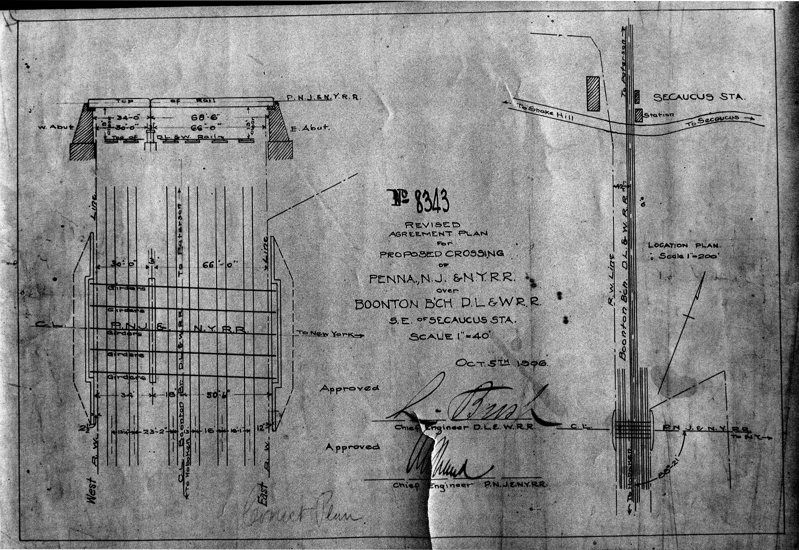 Top of Rail
P.N.J.&N.Y.R.R.
34'-0" 68'-6"
W. Abut.
30'-0" 66'-0"
E. Abut.
D.L.&W. Rails
West R.W. Line
East R.W. Line
To Paterson
30'-0" 66'-0"
Girders
Girders
C.L. P.N.J. & N.Y.R.R.
Girders
Girders
Girders
To New York
34' 18' 50'-6"
23'-2"
C.L. Boonton Bc. D.L.&W.R.R.
To Hoboken
Correct Plan
No 8343
REVISED
AGREEMENT PLAN
FOR
PROPOSED CROSSING
OF
PENNA., N.J. & N.Y.R.R.
OVER
BOONTON B'CH D.L.&W.R.R.
S.E. OF SECAUCUS STA.
SCALE 1"=40'
OCT. 5TH 1896
Approved
L. Bush
Chief Engineer D.L.&W.R.R.
Approved
Chief Engineer P.N.J.&N.Y.R.R.
To Paterson
SECAUCUS STA.
Station
To Snake Hill
To Secaucus
R.W. Line
Boonton B'ch D.L.&W.R.R.
LOCATION PLAN
Scale 1"=200'
C.L.
P.N.J.&N.Y.R.R.
To N.Y.
To Hoboken